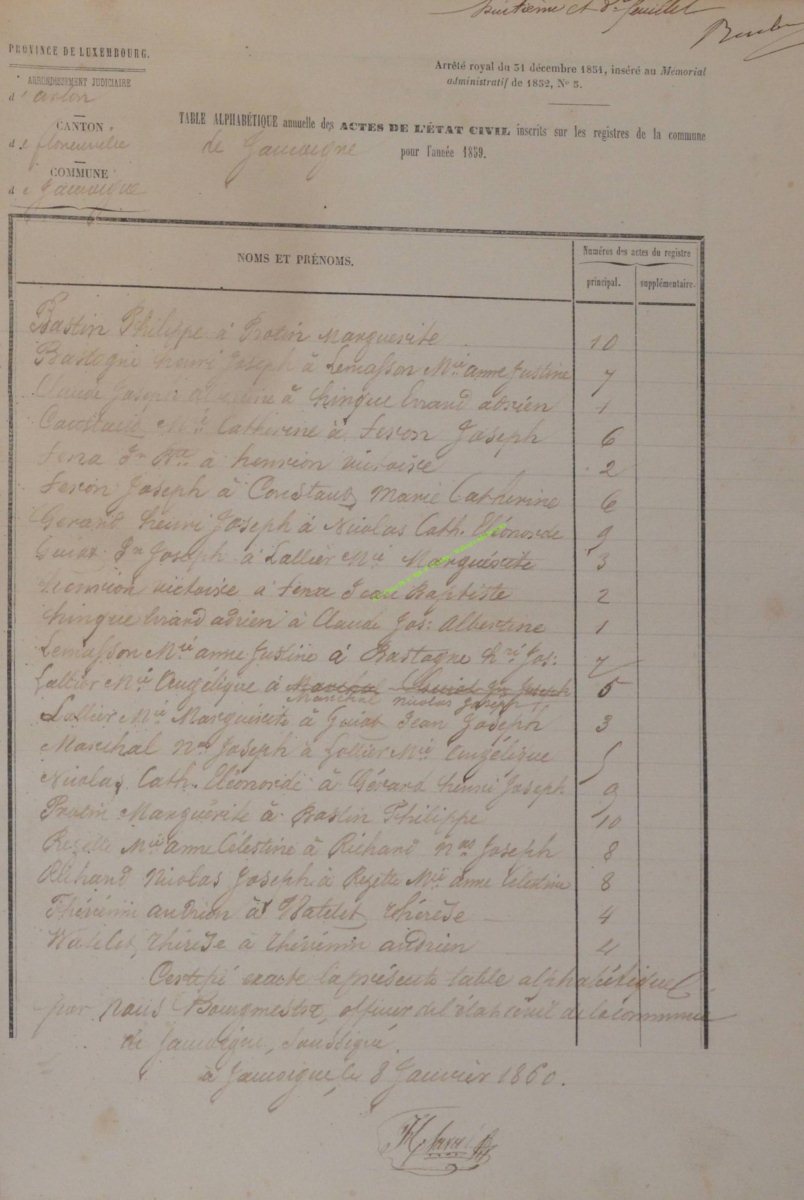 huitième et dr feuillet
PROVINCE DE LUXEMBOURG.
ARRONDISSEMENT JUDICIAIRE
d'arlon
CANTON
de florenville
COMMUNE
de Jamoigne
Arrêté royal du 31 décembre 1851, inséré au Mémorial
administratif de 1852, No 5.
TABLE ALPHABÉTIQUE annuelle des ACTES DE L'ÉTAT CIVIL inscrits sur les registres de la commune
de Jamoigne pour l'année 1859.
NOMS ET PRÉNOMS.
Numéros des actes du registre
principal. supplémentaire.
Bastin Philippe à Protin Marguerite 10
Bastogne henri Joseph à Lemasson Mie anne Justine 7
Claude Joseph à hinque Evrard adrien 1
Coustaux Mie Catherine à feron Joseph 6
fena Jn Bte à henrion victoire 2
feron Joseph à Coustaux Marie Catherine 6
Gerard henri Joseph à Nicolas Cath. Eléonorde 9
Guiot Jn Joseph à Lallier Mie Marguérite 3
henrion victoire à fena Jean Baptiste 2
hinque Evrard adrien à Claude Jos: Albertine 1
Lemasson Mie anne Justine à Bastogne hri Jos: 7
Lallier Mie Angélique à Marchal Guiot Jn Joseph 5
Marchal nicolas Joseph
Lallier Mie Marguérite à Guiot Jean Joseph 3
Marchal nas Joseph à Lallier Mie Angélique 5
Nicolas Cath. Eléonorde à Gérard henri Joseph 9
Protin Marguérite à Bastin Philippe 10
Rezette Mie anne Célestine à Richard nas Joseph 8
Richard Nicolas Joseph à Rezette Mie anne Célestine 8
Thévenin andrien à Watelet thérèse 4
Watelet thérèse à thévenin andrien 4
Certifié exacte la présente table alphabétique
par nous Bourgmestre, officier de l'état civil de la commune
de Jamoigne, soussigné.
à Jamoigne, le 8 Janvier 1860.